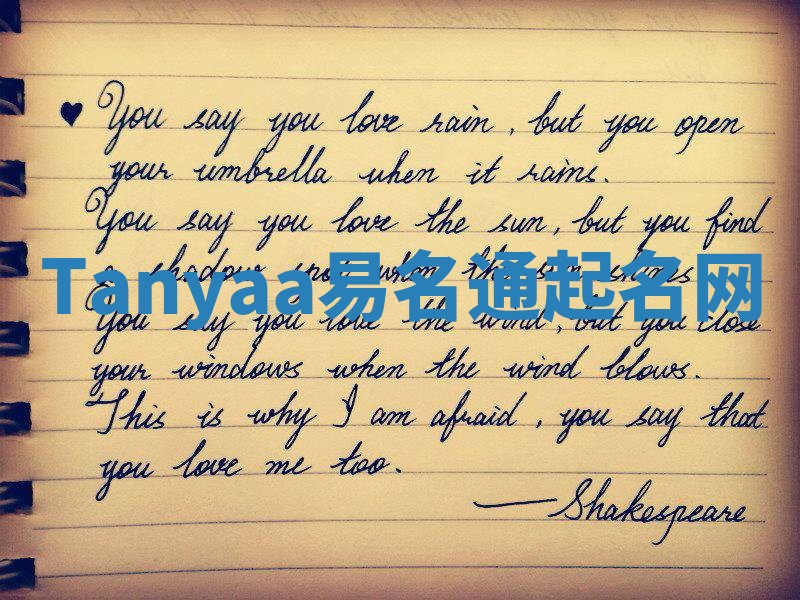 ♥ You say you love rain, but you open
your umbrella when it rains.
You say you love the sun, but you find
a shadow spot when the sun shines
Tanyaa易名通起名网
You say you love the wind, but you close
your windows when the wind blows.
This is why I am afraid, you say that
you love me too.
—Shakespeare